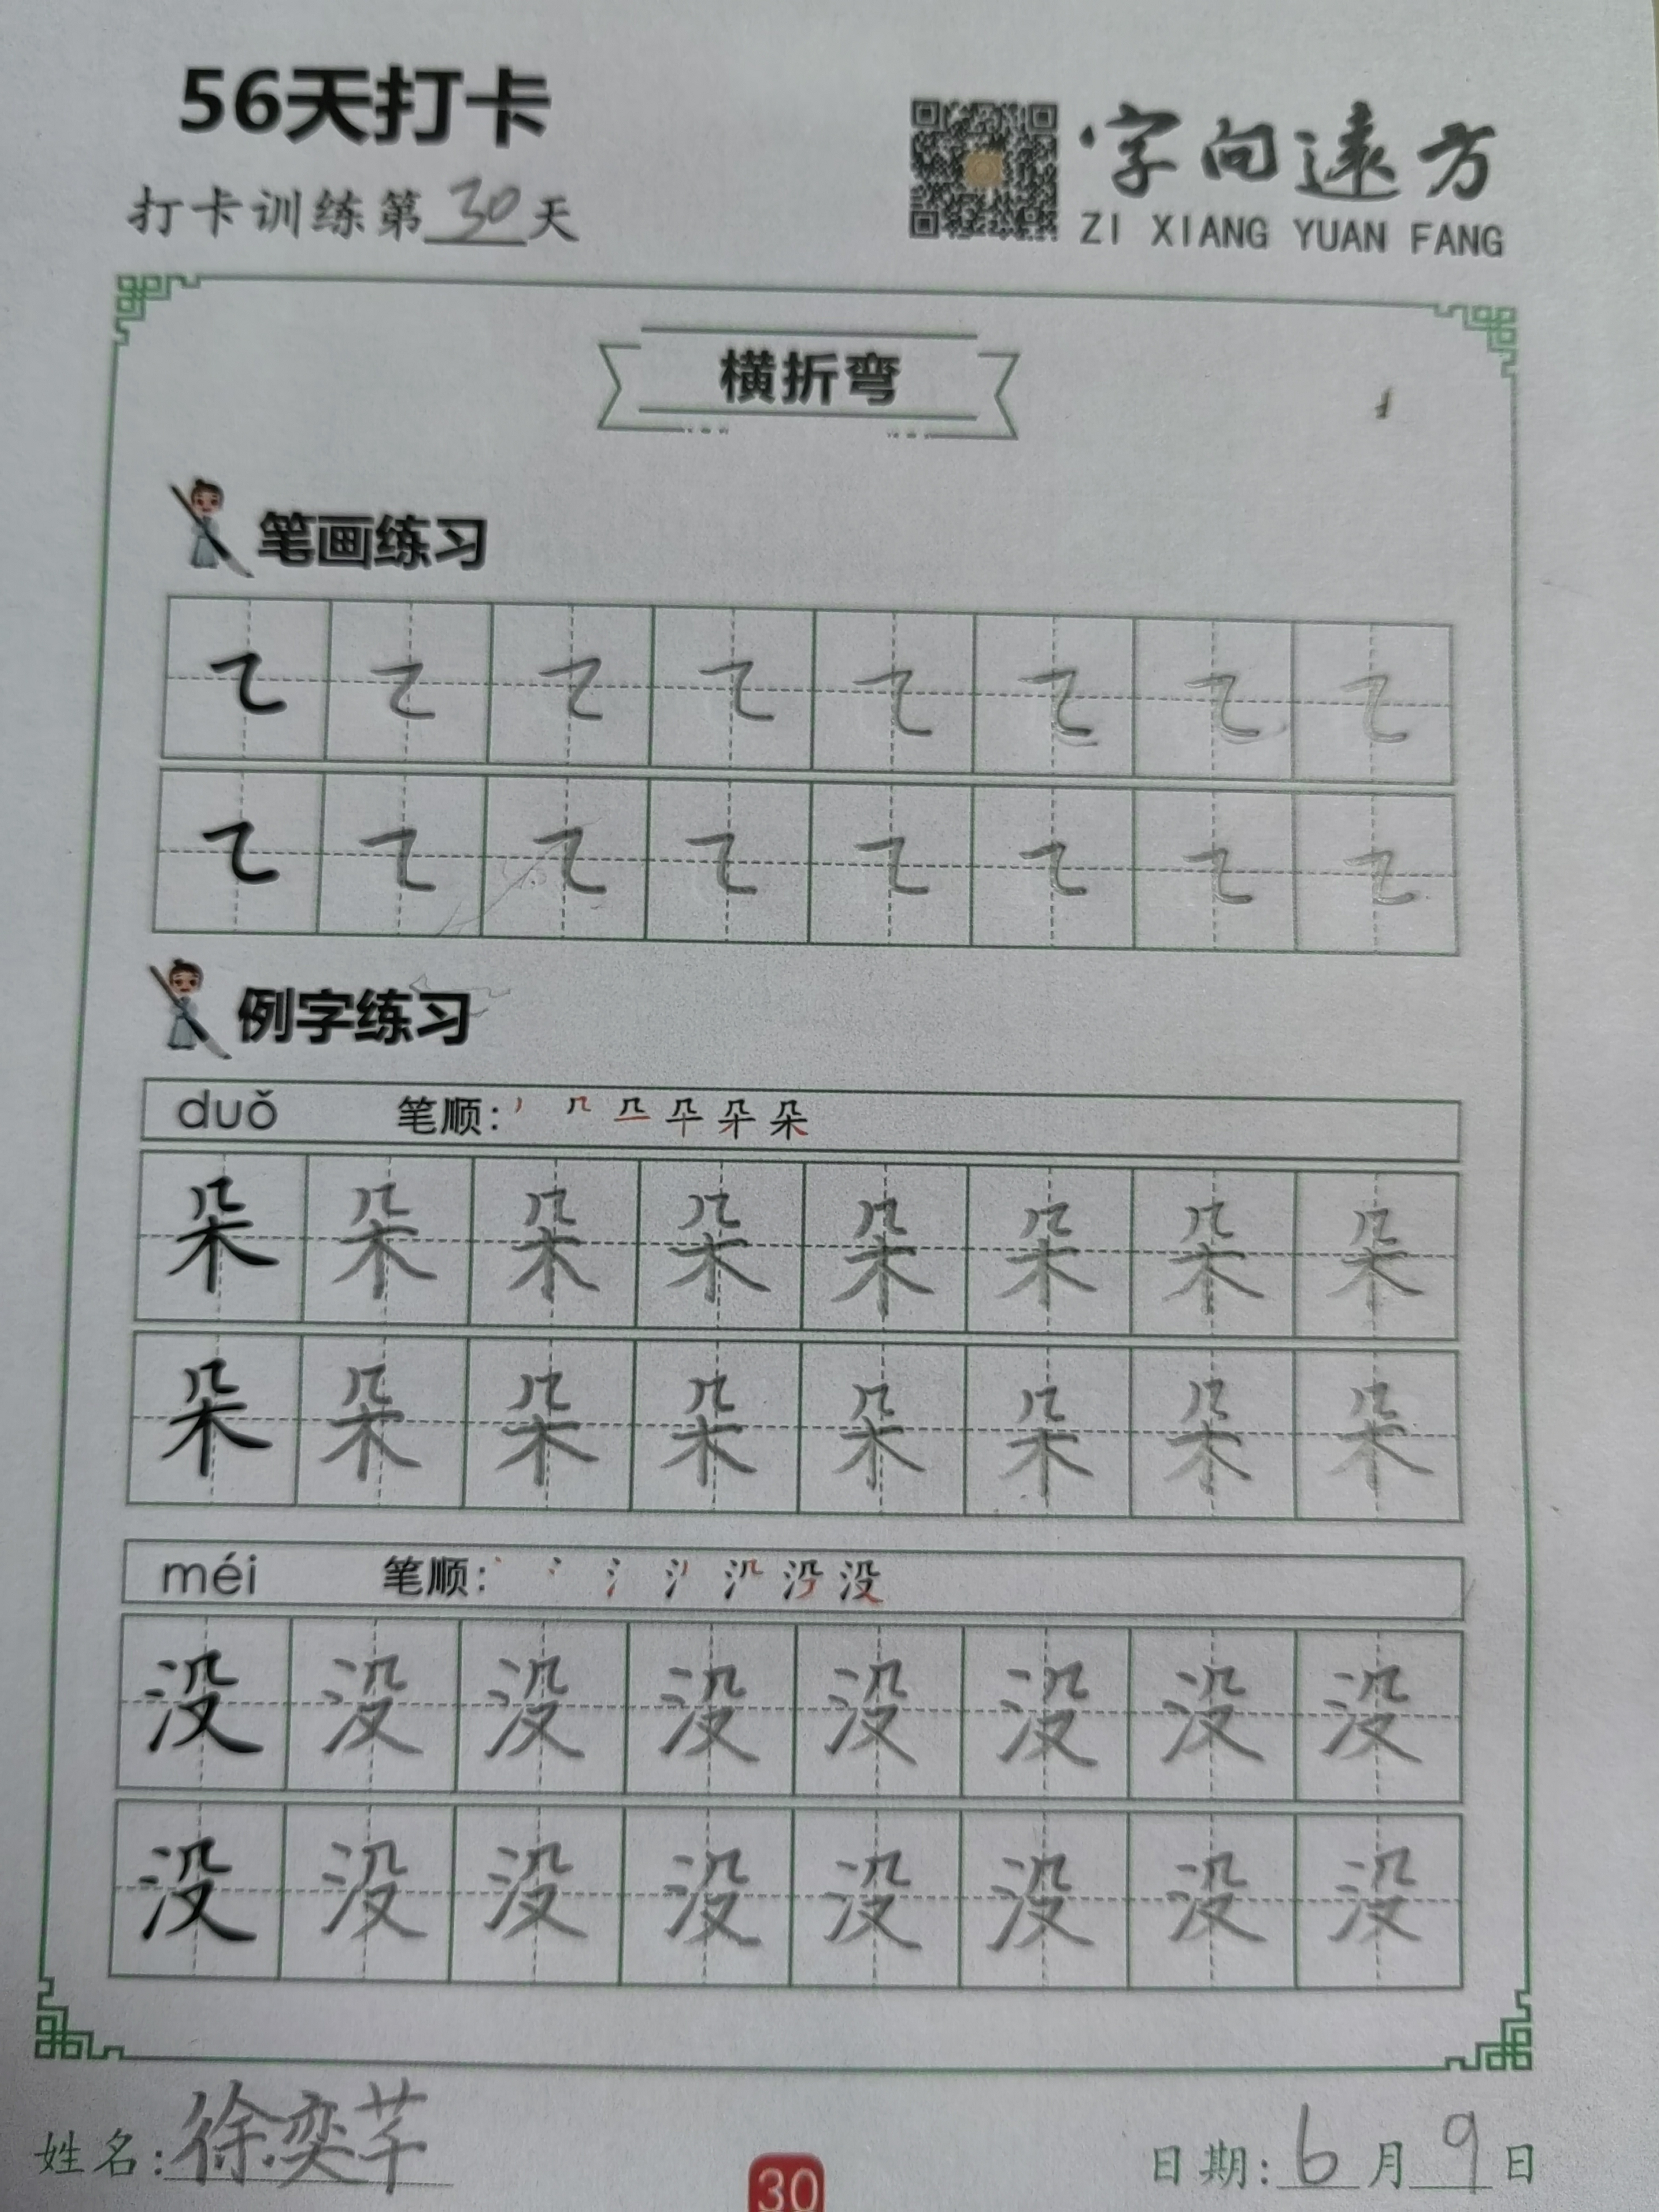 56天打卡
打卡训练第30天
字向遠方
ZI XIANG YUAN FANG
横折弯
笔画练习
㇍ ㇍ ㇍ ㇍ ㇍ ㇍ ㇍ ㇍
㇍ ㇍ ㇍ ㇍ ㇍ ㇍ ㇍ ㇍
例字练习
duǒ 笔顺:
朵 朵 朵 朵 朵 朵 朵 朵
朵 朵 朵 朵 朵 朵 朵 朵
méi 笔顺:
没 没 没 没 没 没 没 没
没 没 没 没 没 没 没 没
姓名:徐奕芊
日期:6月9日
30